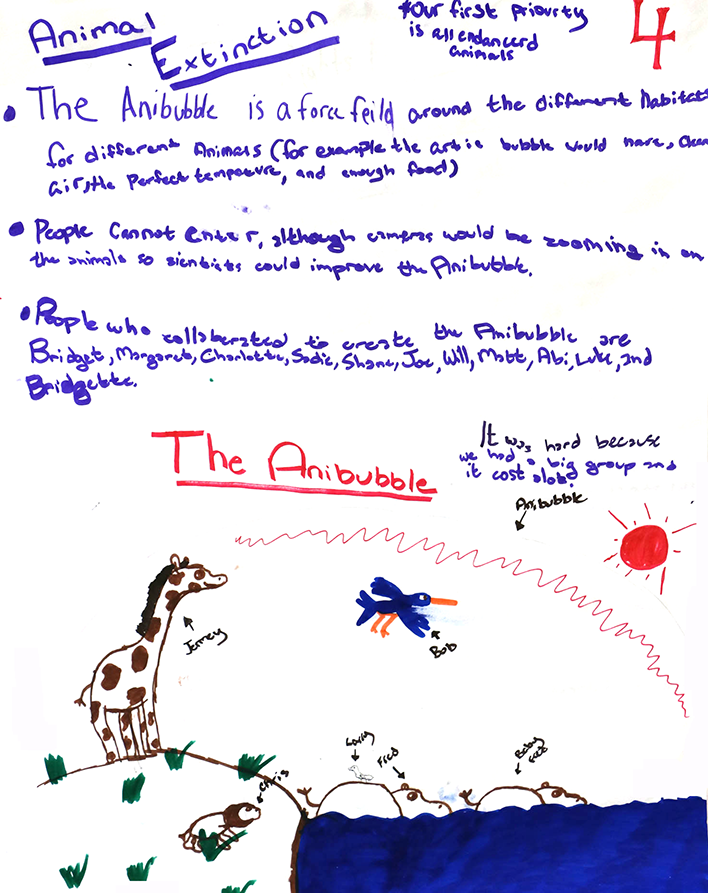 Animal
Extinction
*Our first priority
is all endancerd
animals
4
• The Anibubble is a force feild around the different Habitat
for different Animals (for example the artic bubble would have, Clean
air, the perfect tempeture, and enough food)
• People Cannot Enter, although cameras would be zooming in on
the animals so sientists could improve the Anibubble.
• People who collaberated to create the Anibubble are
Bridget, Margaret, Charlotte, Sadie, Shane, Joe, Will, Matt, Abi, Luke, and
Bridgette.
The Anibubble
It was hard because
we had a big group and
it cost alot.
Anibubble
Bob
Fred
Baby
Fred
Chris